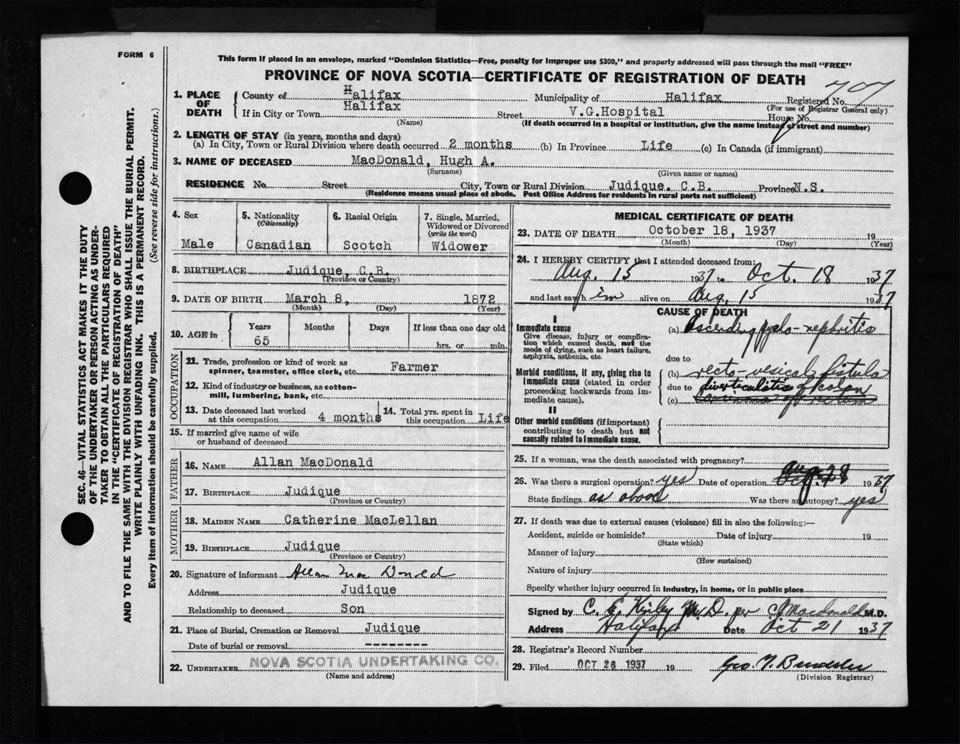 FORM 6
This form if placed in an envelope, marked "Dominion Statistics—Free, penalty for improper use $300," and properly addressed will pass through the mail "FREE"
PROVINCE OF NOVA SCOTIA—CERTIFICATE OF REGISTRATION OF DEATH
SEC. 46—VITAL STATISTICS ACT MAKES IT THE DUTY
OF THE UNDERTAKER OR PERSON ACTING AS UNDER-
TAKER TO OBTAIN ALL THE PARTICULARS REQUIRED
IN THE "CERTIFICATE OF REGISTRATION OF DEATH"
AND TO FILE THE SAME WITH THE DIVISION REGISTRAR WHO SHALL ISSUE THE BURIAL PERMIT.
WRITE PLAINLY WITH UNFADING INK. THIS IS A PERMANENT RECORD.
Every item of information should be carefully supplied. (See reverse side for instructions.)
1. PLACE OF DEATH County of Halifax Municipality of Halifax Registered No. 707
(For use of Registrar General only)
If in City or Town Halifax Street V.G.Hospital House No.
(Name) (If death occurred in a hospital or institution, give the name instead of street and number)
2. LENGTH OF STAY (in years, months and days)
(a) In City, Town or Rural Division where death occurred 2 months (b) In Province Life (c) In Canada (if immigrant)
3. NAME OF DECEASED MacDonald, Hugh A.
(Surname) (Given name or names)
RESIDENCE No. Street City, Town or Rural Division Judique, C.B. Province N.S.
(Residence means usual place of abode. Post Office Address for residents in rural parts not sufficient)
4. Sex Male
5. Nationality (Citizenship) Canadian
6. Racial Origin Scotch
7. Single, Married, Widowed or Divorced (write the word) Widower
8. BIRTHPLACE Judique, C.B.
(Province or Country)
9. DATE OF BIRTH March 8, 1872
(Month) (Day) (Year)
10. AGE in Years Months Days If less than one day old
65 hrs. or min.
OCCUPATION
11. Trade, profession or kind of work as
spinner, teamster, office clerk, etc. Farmer
12. Kind of industry or business, as cotton-
mill, lumbering, bank, etc.
13. Date deceased last worked at this occupation 4 months
14. Total yrs. spent in this occupation Life
15. If married give name of wife
or husband of deceased
FATHER
16. NAME Allan MacDonald
17. BIRTHPLACE Judique
(Province or Country)
MOTHER
18. MAIDEN NAME Catherine MacLellan
19. BIRTHPLACE Judique
(Province or Country)
20. Signature of informant Allan Mac Donald
Address Judique
Relationship to deceased Son
21. Place of Burial, Cremation or Removal Judique
Date of burial or removal ---------
22. UNDERTAKER NOVA SCOTIA UNDERTAKING CO.
(Name and address)
MEDICAL CERTIFICATE OF DEATH
23. DATE OF DEATH October 18, 1937 19
(Month) (Day) (Year)
24. I HEREBY CERTIFY that I attended deceased from:
Aug. 15 1937 to Oct. 18 1937
and last saw him alive on Aug. 15 1937
CAUSE OF DEATH
I
Immediate cause
Give disease, injury or complica-
tion which caused death, not the
mode of dying, such as heart failure,
asphyxia, asthenia, etc.
(a) Ascending pyelo-nephritis
due to
Morbid conditions, if any, giving rise to
immediate cause (stated in order
proceeding backwards from im-
mediate cause).
(b) recto-vesical fistula
due to diverticulitis of colon
(c)
II
Other morbid conditions (if important)
contributing to death but not
causally related to immediate cause.
25. If a woman, was the death associated with pregnancy?
26. Was there a surgical operation? yes Date of operation Aug. 28 1937
State findings as above Was there an autopsy? yes
27. If death was due to external causes (violence) fill in also the following:—
Accident, suicide or homicide? Date of injury 19
(State which)
Manner of injury
(How sustained)
Nature of injury
Specify whether injury occurred in industry, in home, or in public place
Signed by C. E. Kirby M.D. per C Macdonald M.D.
Address Halifax Date Oct 21 1937
28. Registrar's Record Number
29. Filed OCT 26 1937 19
(Division Registrar)